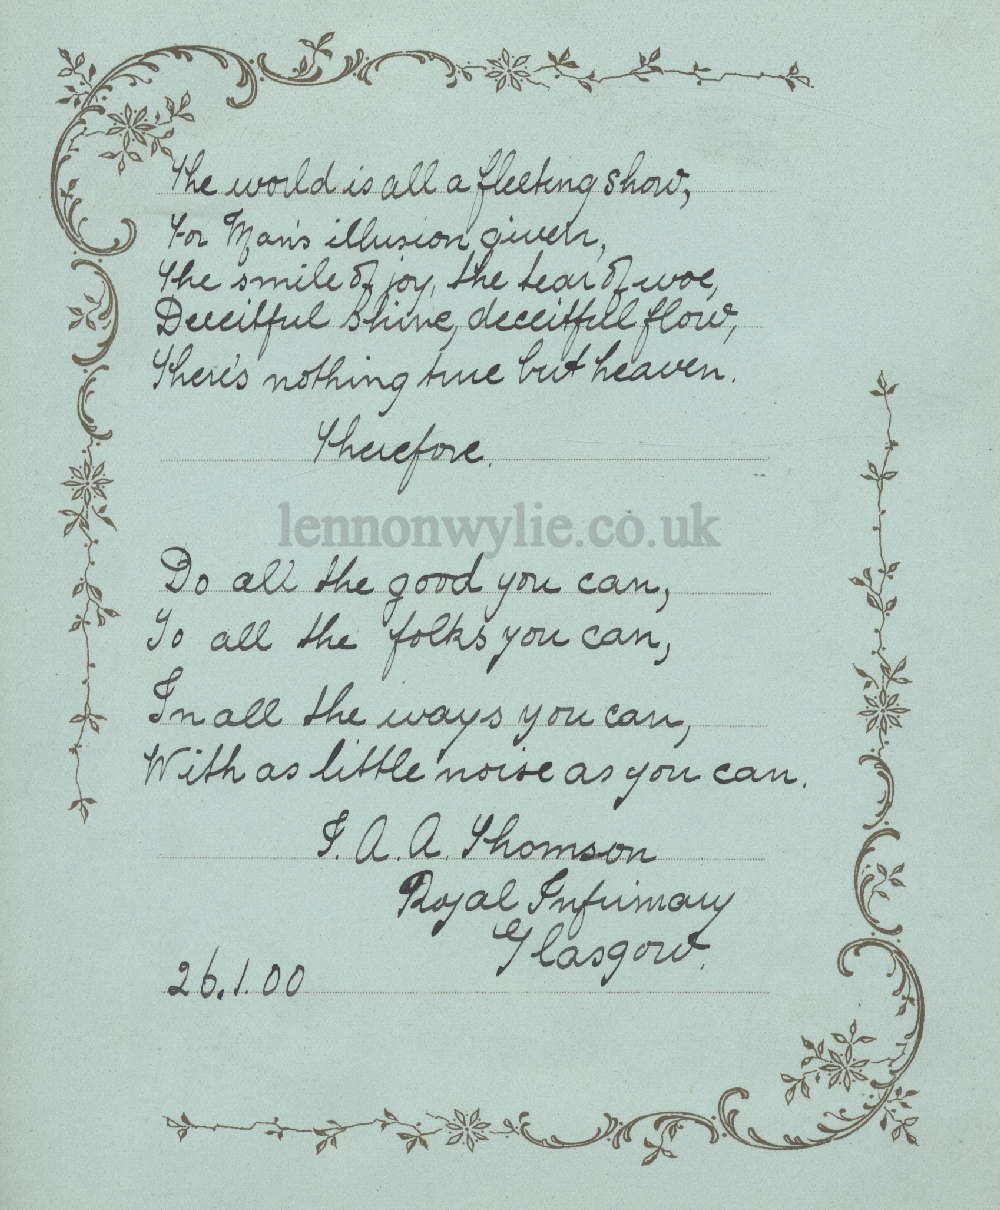 The world is all a fleeting show,
For Man's illusion given,
The smile of joy, the tear of woe,
Deceitful shine, deceitful flow,
There's nothing true but heaven.
Therefore.
lennonwylie.co.uk
Do all the good you can,
To all the folks you can,
In all the ways you can,
With as little noise as you can.
J. A. A. Thomson
Royal Infirmary
Glasgow.
26.1.00